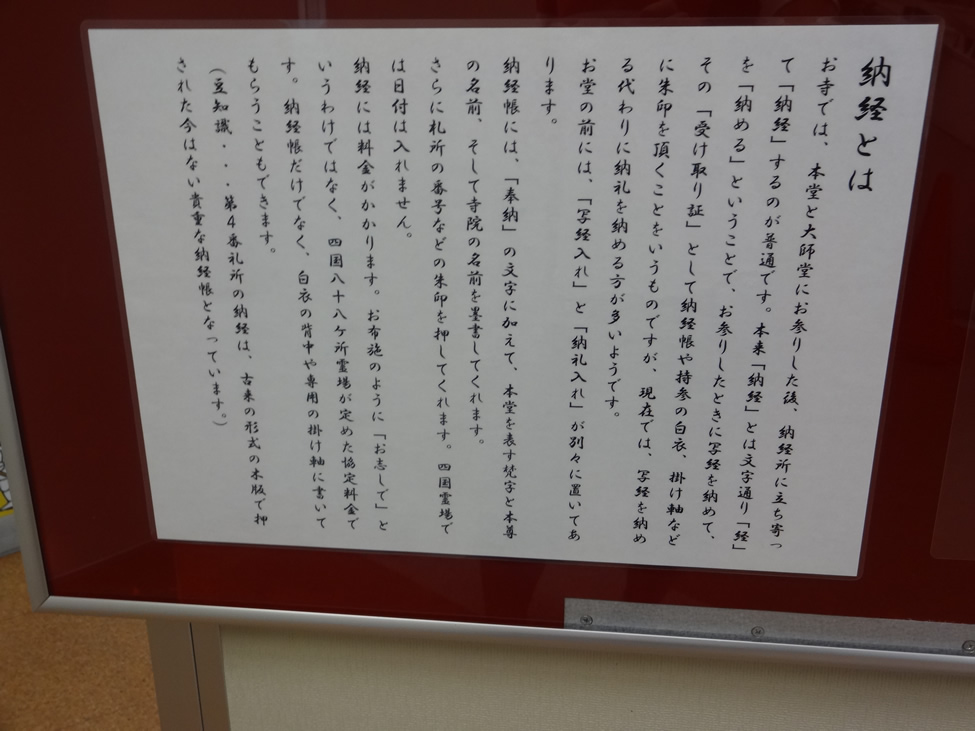 納経とは
お寺では、本堂と大師堂にお参りした後、納経所に立ち寄っ
て「納経」するのが普通です。本来「納経」とは文字通り「経」
を「納める」ということで、お参りしたときに写経を納めて、
その「受け取り証」として納経帳や持参の白衣、掛け軸など
に朱印を頂くことをいうものですが、現在では、写経を納め
る代わりに納札を納める方が多いようです。
お堂の前には、「写経入れ」と「納札入れ」が別々に置いてあ
ります。
納経帳には、「奉納」の文字に加えて、本堂を表す梵字と本尊
の名前、そして寺院の名前を墨書してくれます。
さらに札所の番号などの朱印を押してくれます。四国霊場で
は日付は入れません。
納経には料金がかかります。お布施のように「お志しで」と
いうわけではなく、四国八十八ケ所霊場が定めた協定料金で
す。納経帳だけでなく、白衣の背中や専用の掛け軸に書いて
もらうこともできます。
（豆知識・・・第４番札所の納経は、古来の形式の木版で押
された今はない貴重な納経帳となっています。）